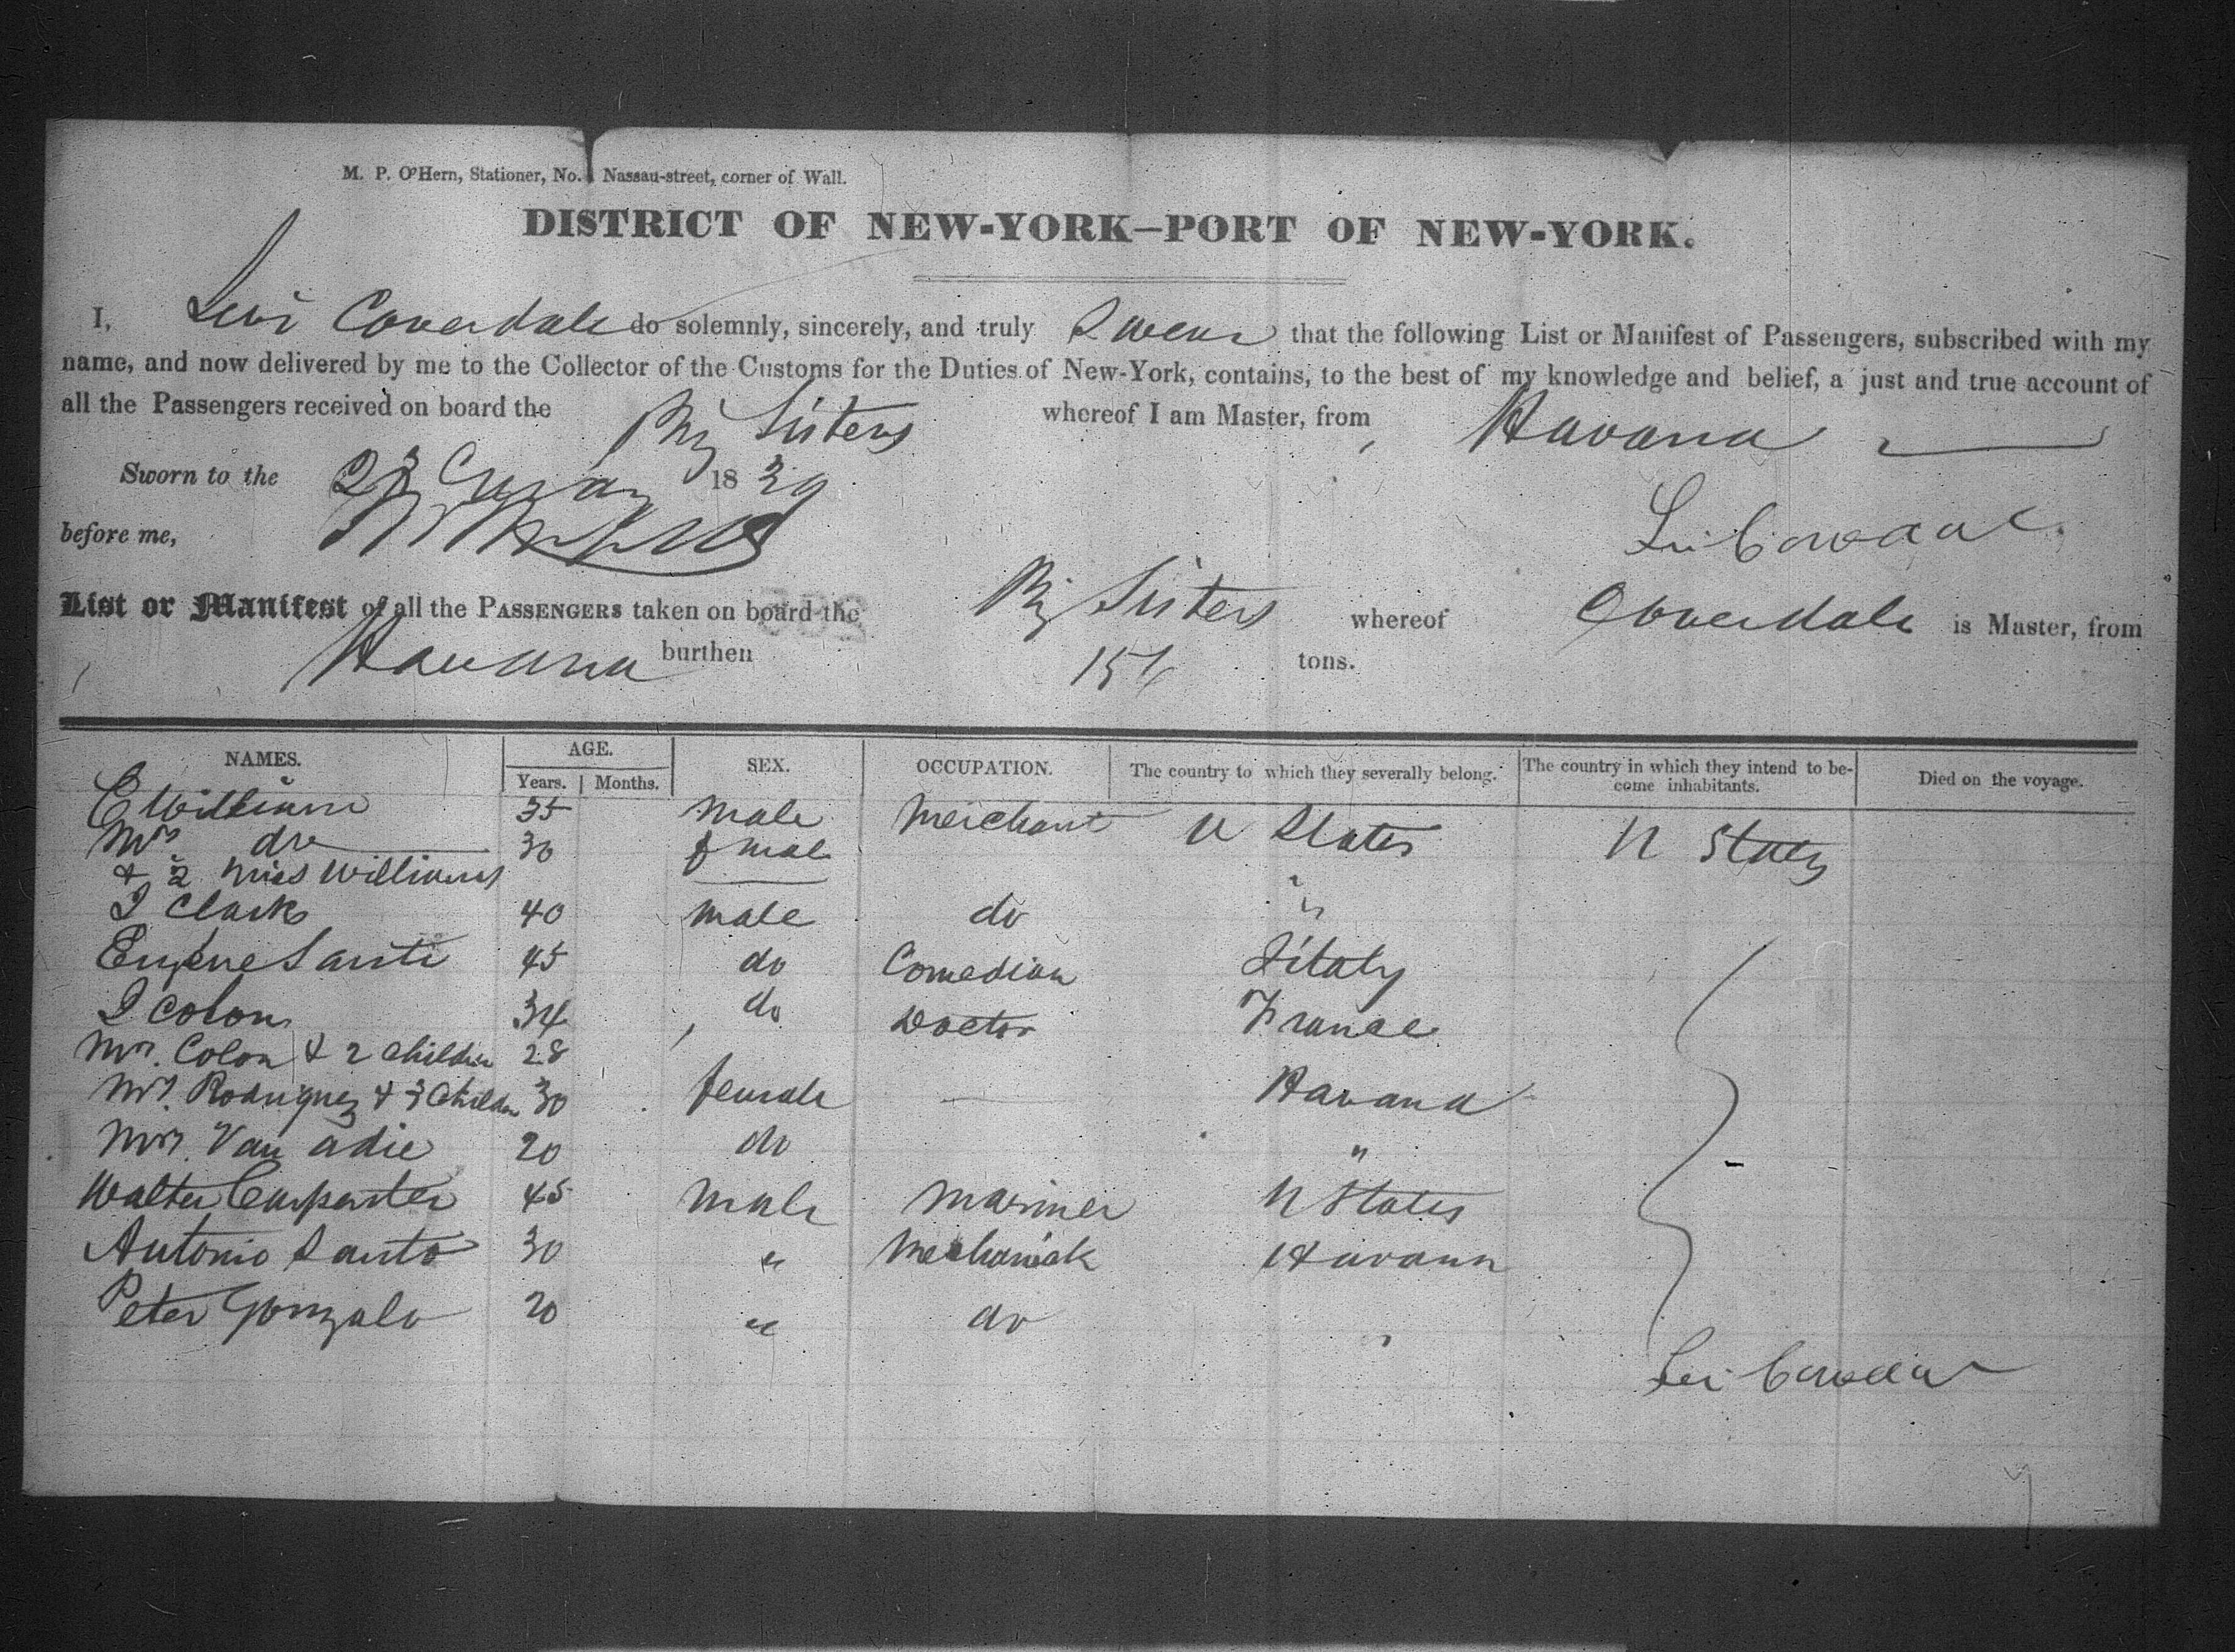 M. P. O'Hern, Stationer, No. 1 Nassau-street, corner of Wall.
DISTRICT OF NEW-YORK—PORT OF NEW-YORK.
I, Levi Coverdale do solemnly, sincerely, and truly Swear that the following List or Manifest of Passengers, subscribed with my
name, and now delivered by me to the Collector of the Customs for the Duties of New-York, contains, to the best of my knowledge and belief, a just and true account of
all the Passengers received on board the Brig Sisters whereof I am Master, from Havana
Sworn to the 23 May 1839
before me,
Levi Coverdale
List or Manifest of all the PASSENGERS taken on board the Brig Sisters whereof Coverdale is Master, from
Havana burthen tons.
NAMES. AGE. Years. Months. SEX. OCCUPATION. The country to which they severally belong. The country in which they intend to become inhabitants. Died on the voyage.
C William 35 male Merchant U States U States
Mrs do 30 f mal
& 2 Miss Williams
J Clark 40 male do "
Eugene Santi 45 do Comedian Iitaly
J Colon 34 do Doctor France
Mrs. Colon & 2 Children 28
Mrs. Rodriguez & 3 Children 30 female Havana
Mrs. Van adie 20 do "
Walter Carpenter 45 male Mariner U States
Antonio Santo 30 " Mechanick Havana
Peter Gonzalo 20 " do "
Levi Coverdale